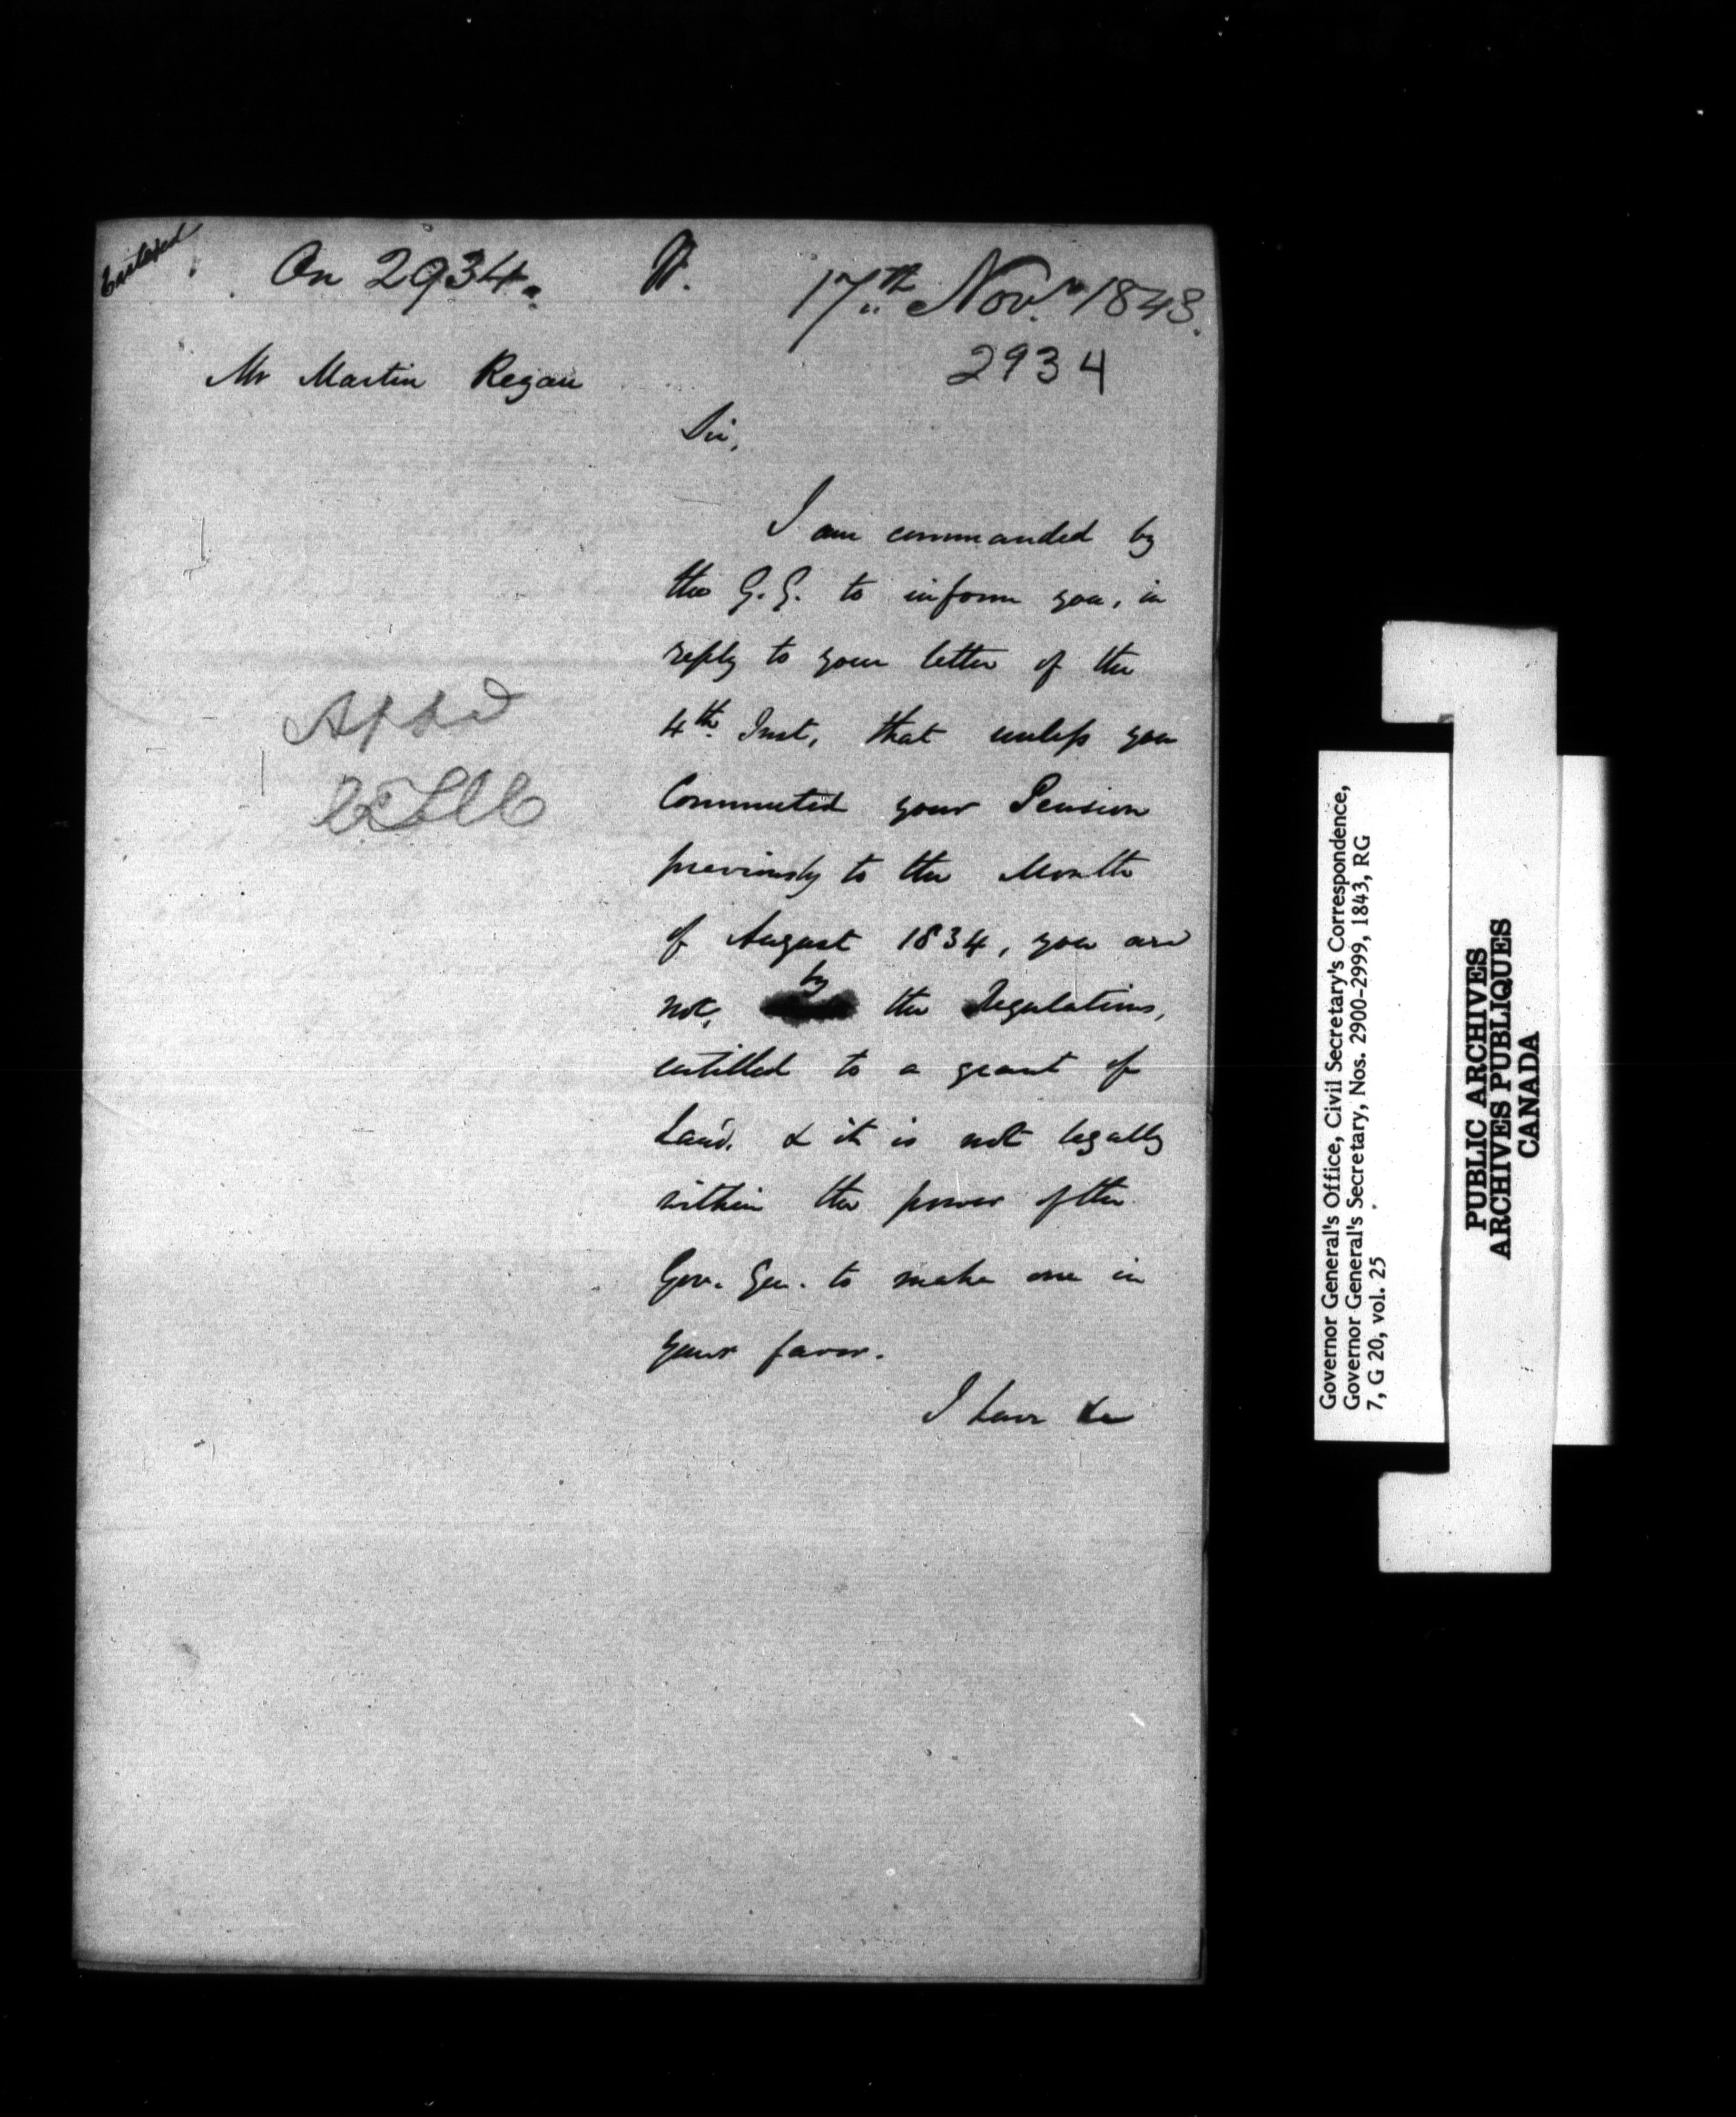 Entered
On 2934.
17th Novr 1843.
2934
Mr Martin Regan
Sir,
I am commanded by
the G.G. to inform you, in
reply to your letter of the
4th Inst, that unless you
Commuted your Pension
previously to the Month
of August 1834, you are
not, by the Regulations,
entitled to a grant of
Land. & it is not legally
within the power of the
Gov. Gen. to make one in
your favor.
I have &c
Governor General's Office, Civil Secretary's Correspondence,
Governor General's Secretary, Nos. 2900-2999, 1843, RG
7, G 20, vol. 25
PUBLIC ARCHIVES
ARCHIVES PUBLIQUES
CANADA